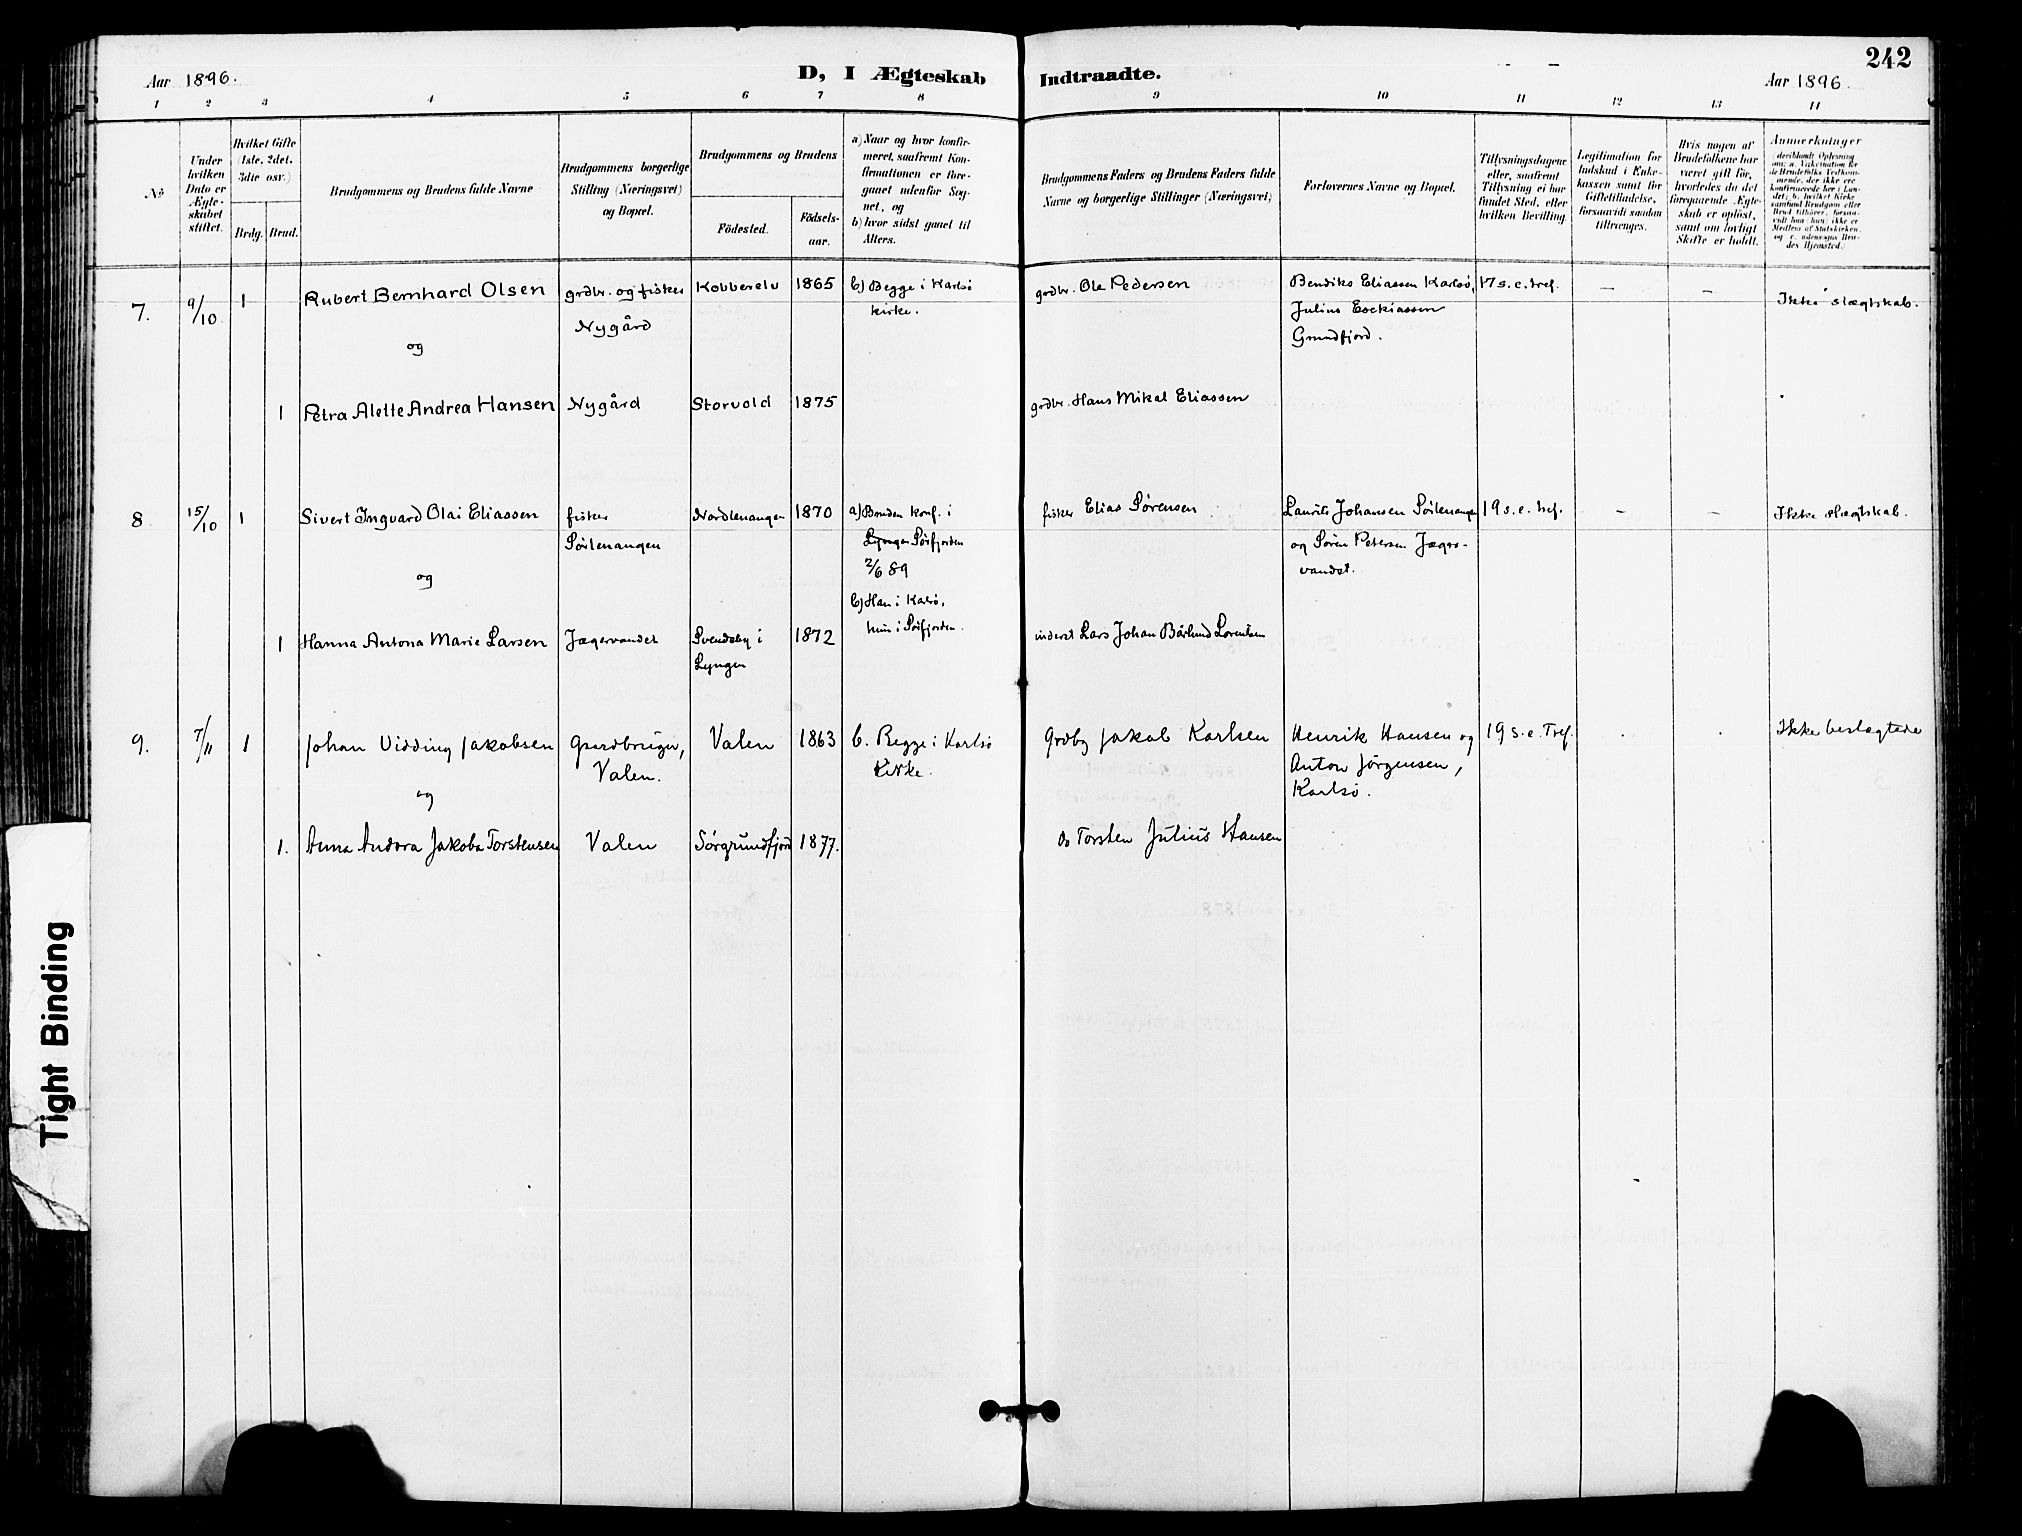 Aar 1896.
D, I Ægteskab Indtraadte.
242
Aar 1896.
1 2 3 4 5 6 7 8 9 10 11 12 13 14
No
Under hvilken Dato er Ægte-skabet stiftet.
Hvilket Gifte (1ste, 2det, 3die osv.)
Brdg. Brud.
Brudgommens og Brudens fulde Navne
Brudgommens borgerlige Stilling (Næringsvei) og Bopæl.
Brudgommens og Brudens
Födested.
Födsels-aar.
a) Naar og hvor konfir-meret, saafremt Kon-firmationen er fore-gaaet udenfor Sog-net, og
b) hvor sidst gaaet til Alters.
Brudgommens Faders og Brudens Faders fulde Navne og borgerlige Stillinger (Næringsvei)
Forlovernes Navne og Bopæl.
Tillysningsdagene eller, saafremt Tillysning ei har fundet Sted, efter hvilken Bevilling.
Legitimation for Indskud i Enke-kassen samt for Giftetilladelse, forsaavidt saadan tiltrænges.
Hvis nogen af Brudefolkene har været gift før, hvorledes da det foregaaende Ægte-skab er oplöst, samt om lovligt Skifte er holdt.
Anmærkninger
7. 9/10 1 Rubert Bernhard Olsen grdbr. og fisker Kobberelv 1865 b) Begge i Karlsö grdbr. Ole Pedersen Bendiks Eliassen Karlsö, 17 s. e. tref. – – Ikke slægtskab.
Nygård kirke. Julius
og Grundfjord.
1 Petra Alette Andrea Hansen Nygård Storvold 1875 grdbr. Hans Mikal Eliassen
8 15/10 1 Sivert Ingvard Olai Eliassen fisker Nordlenangen 1870 a) Bruden konf. i fisker Elias Sörensen Laurits Johansen Sörlenangen 19 s. e. tref. – – Ikke slægtskab.
Sörlenangen Lyngen Sörfjorden og Sören Petersen Jæger-
og 2/6 89 vandet.
b) Han i Karlsö,
1 Hanna Antona Marie Larsen Jægervandet Svendsby i 1872 hun i Sörfjorden. inderst Lars Johan Lorentsen
Lyngen
9. 7/11 1 Johan Vidding Jakobsen Gaardbruger, Valen 1863 b. Begge i Karlsö Grdbg Jakob Karlsen Henrik Hansen og 19 s. e. Tref. Ikke beslægtede
Valen. Kirke. Anton Jörgensen,
og Karlsö.
1. Anna Andora Jakoba Torstensen Valen Sørgrundfjord 1877. do Torsten Julius Hansen
Tight Binding